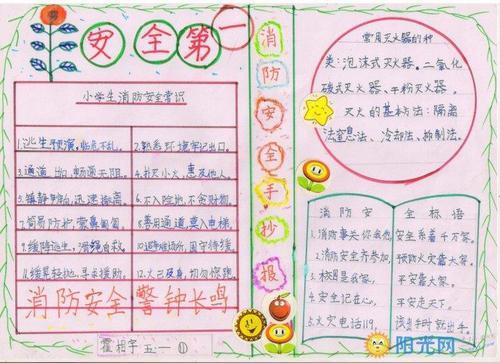 安全第一
小学生消防安全常识
1.逃生预演，临危不乱。
2.熟悉环境牢记出口。
3.通道出口，畅通无阻。
4.扑灭小火，惠及他人。
5.镇静 迅速撤离。
6.不入险地，不贪财物。
7.简易防护，蒙鼻匍匐。
8.善用通道，莫入电梯。
9.缓降逃生，滑绳自救。
10.避难场所，固守待援。
11.缓晃轻抛，寻求援助。
12.火已及身，切勿惊跑。
消防安全 警钟长鸣
霍相宇 五一①
消防安全手抄报
常见灭火器的种
类：泡沫式灭火器、二氧化
碳式灭火器、干粉灭火器。
灭火的基本方法：隔离
法窒息法、冷却法、抑制法。
消防安全标语
1.消防事关你我他，安全系着千万家。
2.消防安全齐参加，预防火灾靠大家。
3. 是我家，平安靠大家。
4.安全记在心，平安走天下。
5.火灾电话119，该出手时就出手。
阳光网